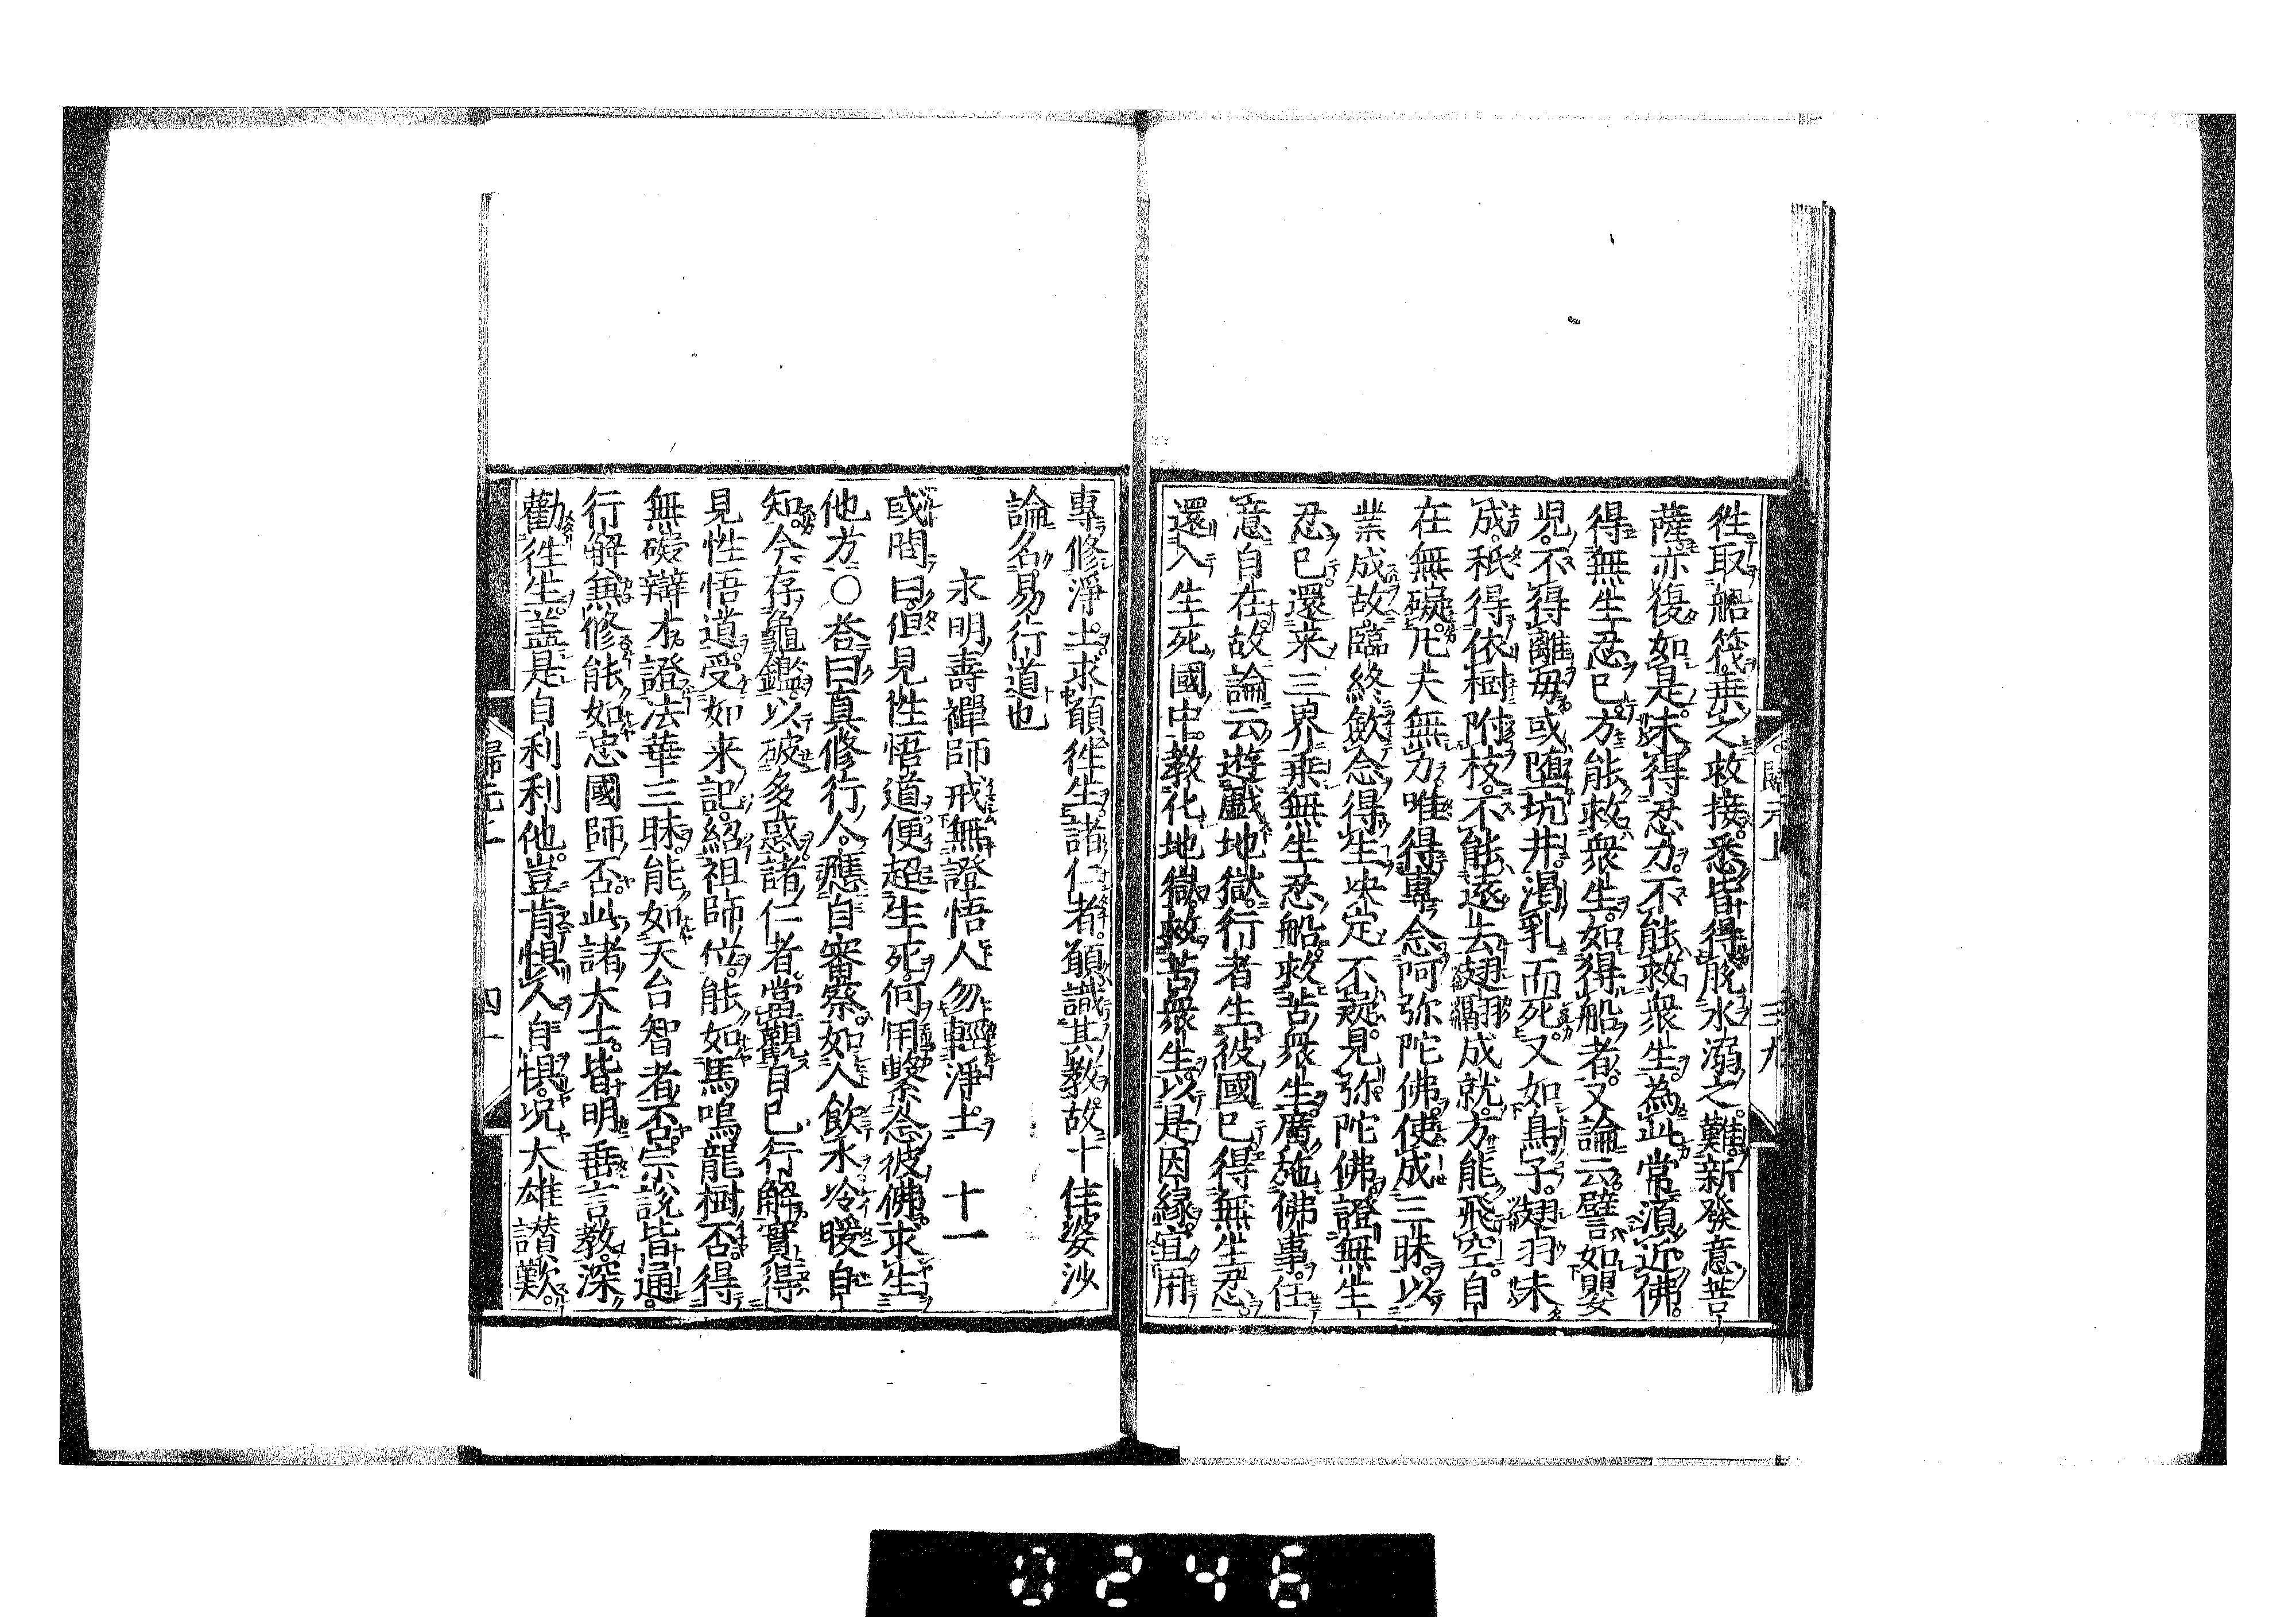 徃取船筏乗之救接。悉皆得脱水溺之難。新發意菩
薩亦復如是。未得忍力。不能救衆生。為此常須近佛。
得無生忍已方能救衆生。如得船者。又論云。譬如嬰
児。不得離毋。或墮坑井。渇乳而死。又如鳥子。翅羽未
成。秖得依樹附枝。不能遠去。翅翮成就。方能飛空。自
在無礙。凡夫無力。唯得專念阿弥陀佛。使成三昧。以
業成故。臨終斂念得生。决定不疑。見弥陀佛。證無生
忍已。還来三界。乗無生忍船。救苦衆生。廣施佛事。任
意自在。故論云。遊戲地獄。行者生彼國已。得無生忍。
還入生死國中。教化地獄。救苦衆生。以是因緣。宜用
歸元上 三九
專修淨土。求願徃生。諸仁者。願識其教。故十住婆沙
論名易行道也
永明壽禪師戒無證悟人勿輕淨土 十一
或問曰。但見性悟道。便超生死。何用繫念彼佛。求生
他方○荅曰真修行人。應自審察。如人飲水冷暖自
知。今存龜鑑。以破多惑。諸仁者。當觀自己行解。實得
見性悟道。受如来記。紹祖師位。能如馬鳴龍樹否。得
無礙辯才。證法華三昧。能如天台智者否。宗說皆通。
行解兼修。能如忠國師否。此諸大士。皆明垂言教。深
勸徃生。蓋是自利利他。豈肯惧人自惧。况大雄讃歎。
歸元上 四十
0246